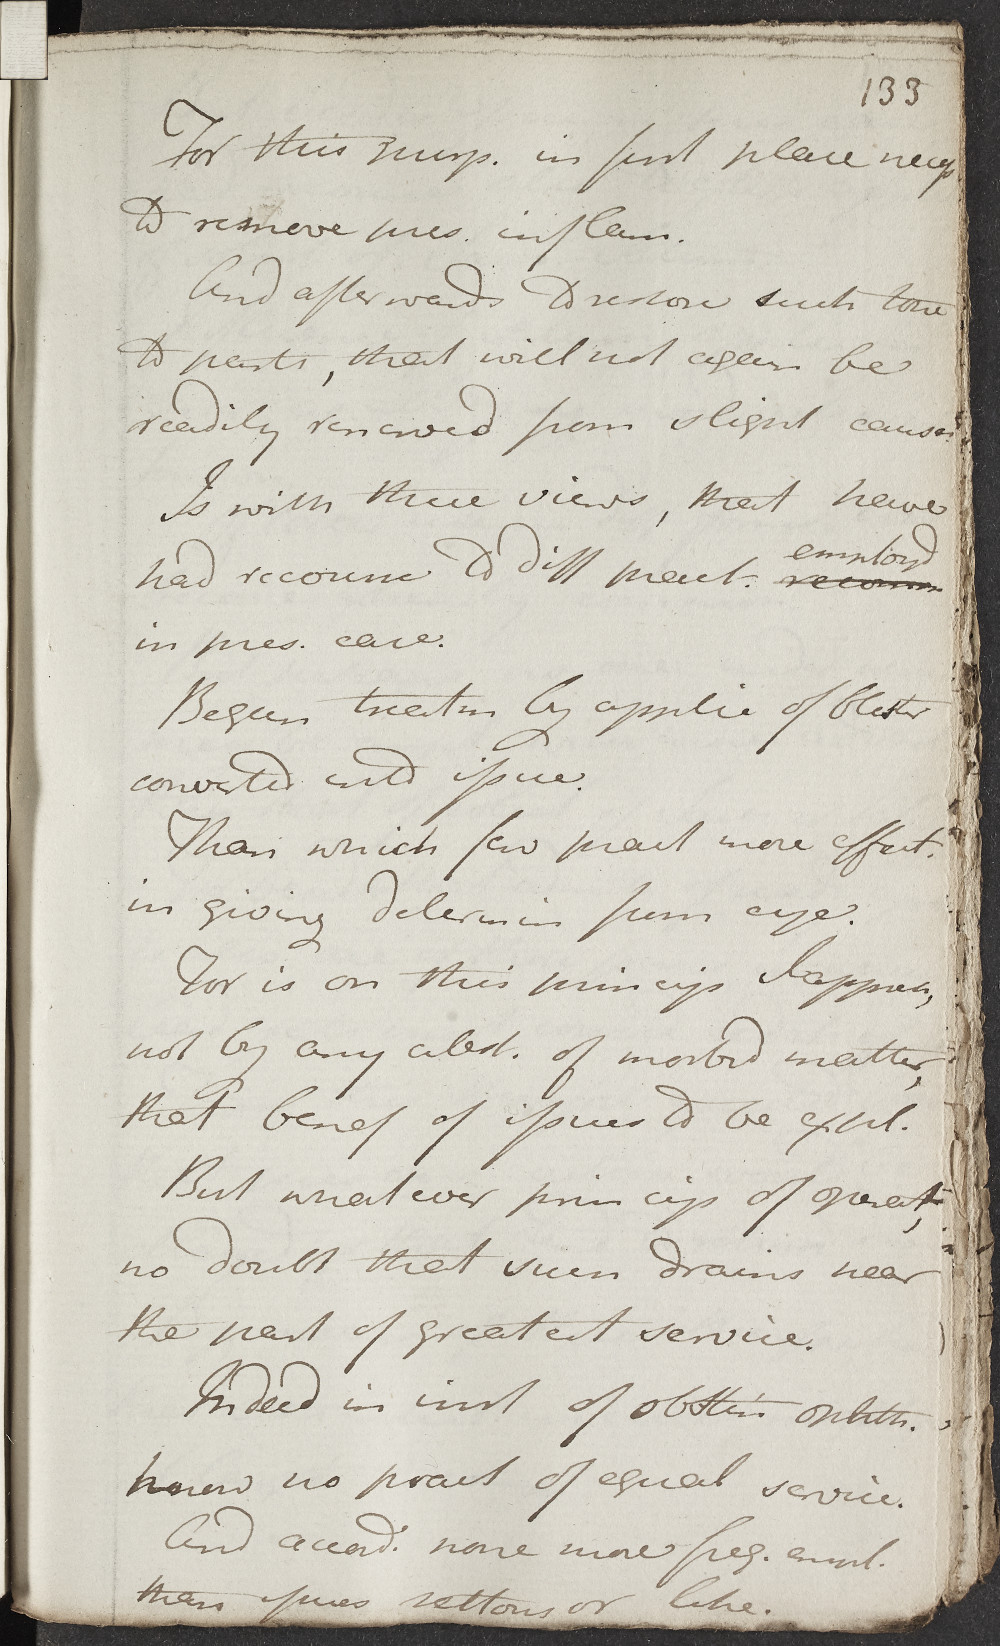 133
For this purp. in first place necess
to remove pres. inflam.
And afterwards to restore such tone
to parts, that will not again be
readily renewed from slight causes
Is with these views, that have
had recourse to diff pract. employd
recomm
in pres. case.
Begun treatm by applic of blister
converted into issue.
Than which few pract more effect.
in giving determin from eye.
For is on this princip I appreh,
not by any abst. of morbid matter,
that benef of issues to be expl.
But whatever princip of operat,
no doubt that such drains near
the part of greatest service.
Indeed in inst of obstin ophth.
know no pract of equal service.
And accord. none more freq. empl.
than issues settons or like.